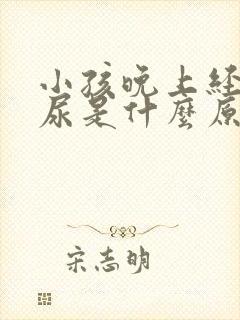 小孩晚上经
尿是什麼原
宋志明